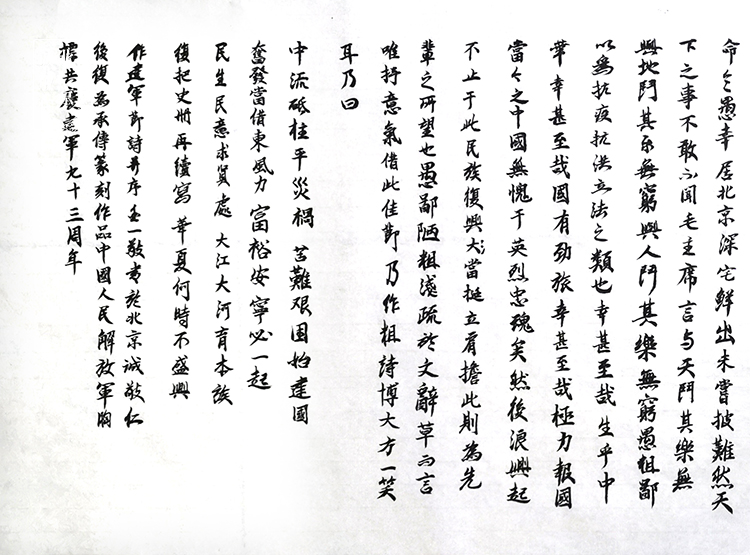 命令愚幸居北京深宅鮮出未嘗披難然天
下之事不敢不聞毛主席言与天鬥其樂無
與地鬥其樂無窮與人鬥其樂無窮愚粗鄙
以為抗疫抗洪立法之類也幸甚至哉生乎中
華幸甚至哉國有勁旅幸甚至哉極力報國
當今之中國無愧于英烈忠魂矣然後浪興起
不止于此民族復興大當挺立肩擔此則為先
輩之所望也愚鄙陋粗淺疏於文辭草而言
唯抒意氣借此佳節乃作粗詩博大方一笑
耳乃曰
中流砥柱平災禍 苦難艱困始建國
奮發當借東風力 富裕安寧必一起
民生民意求實處 大江大河育本族
復把史冊再續寫 華夏何時不盛興
作建軍節詩并序 壬一敬書於北京誠敬仁
後復為承傳篆刻作品中國人民解放軍胸
標共慶建軍九十三周年